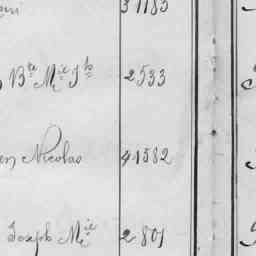 31183
Bte Mie Jh 2533
Nicolas 41582
Joseph Mie 2801